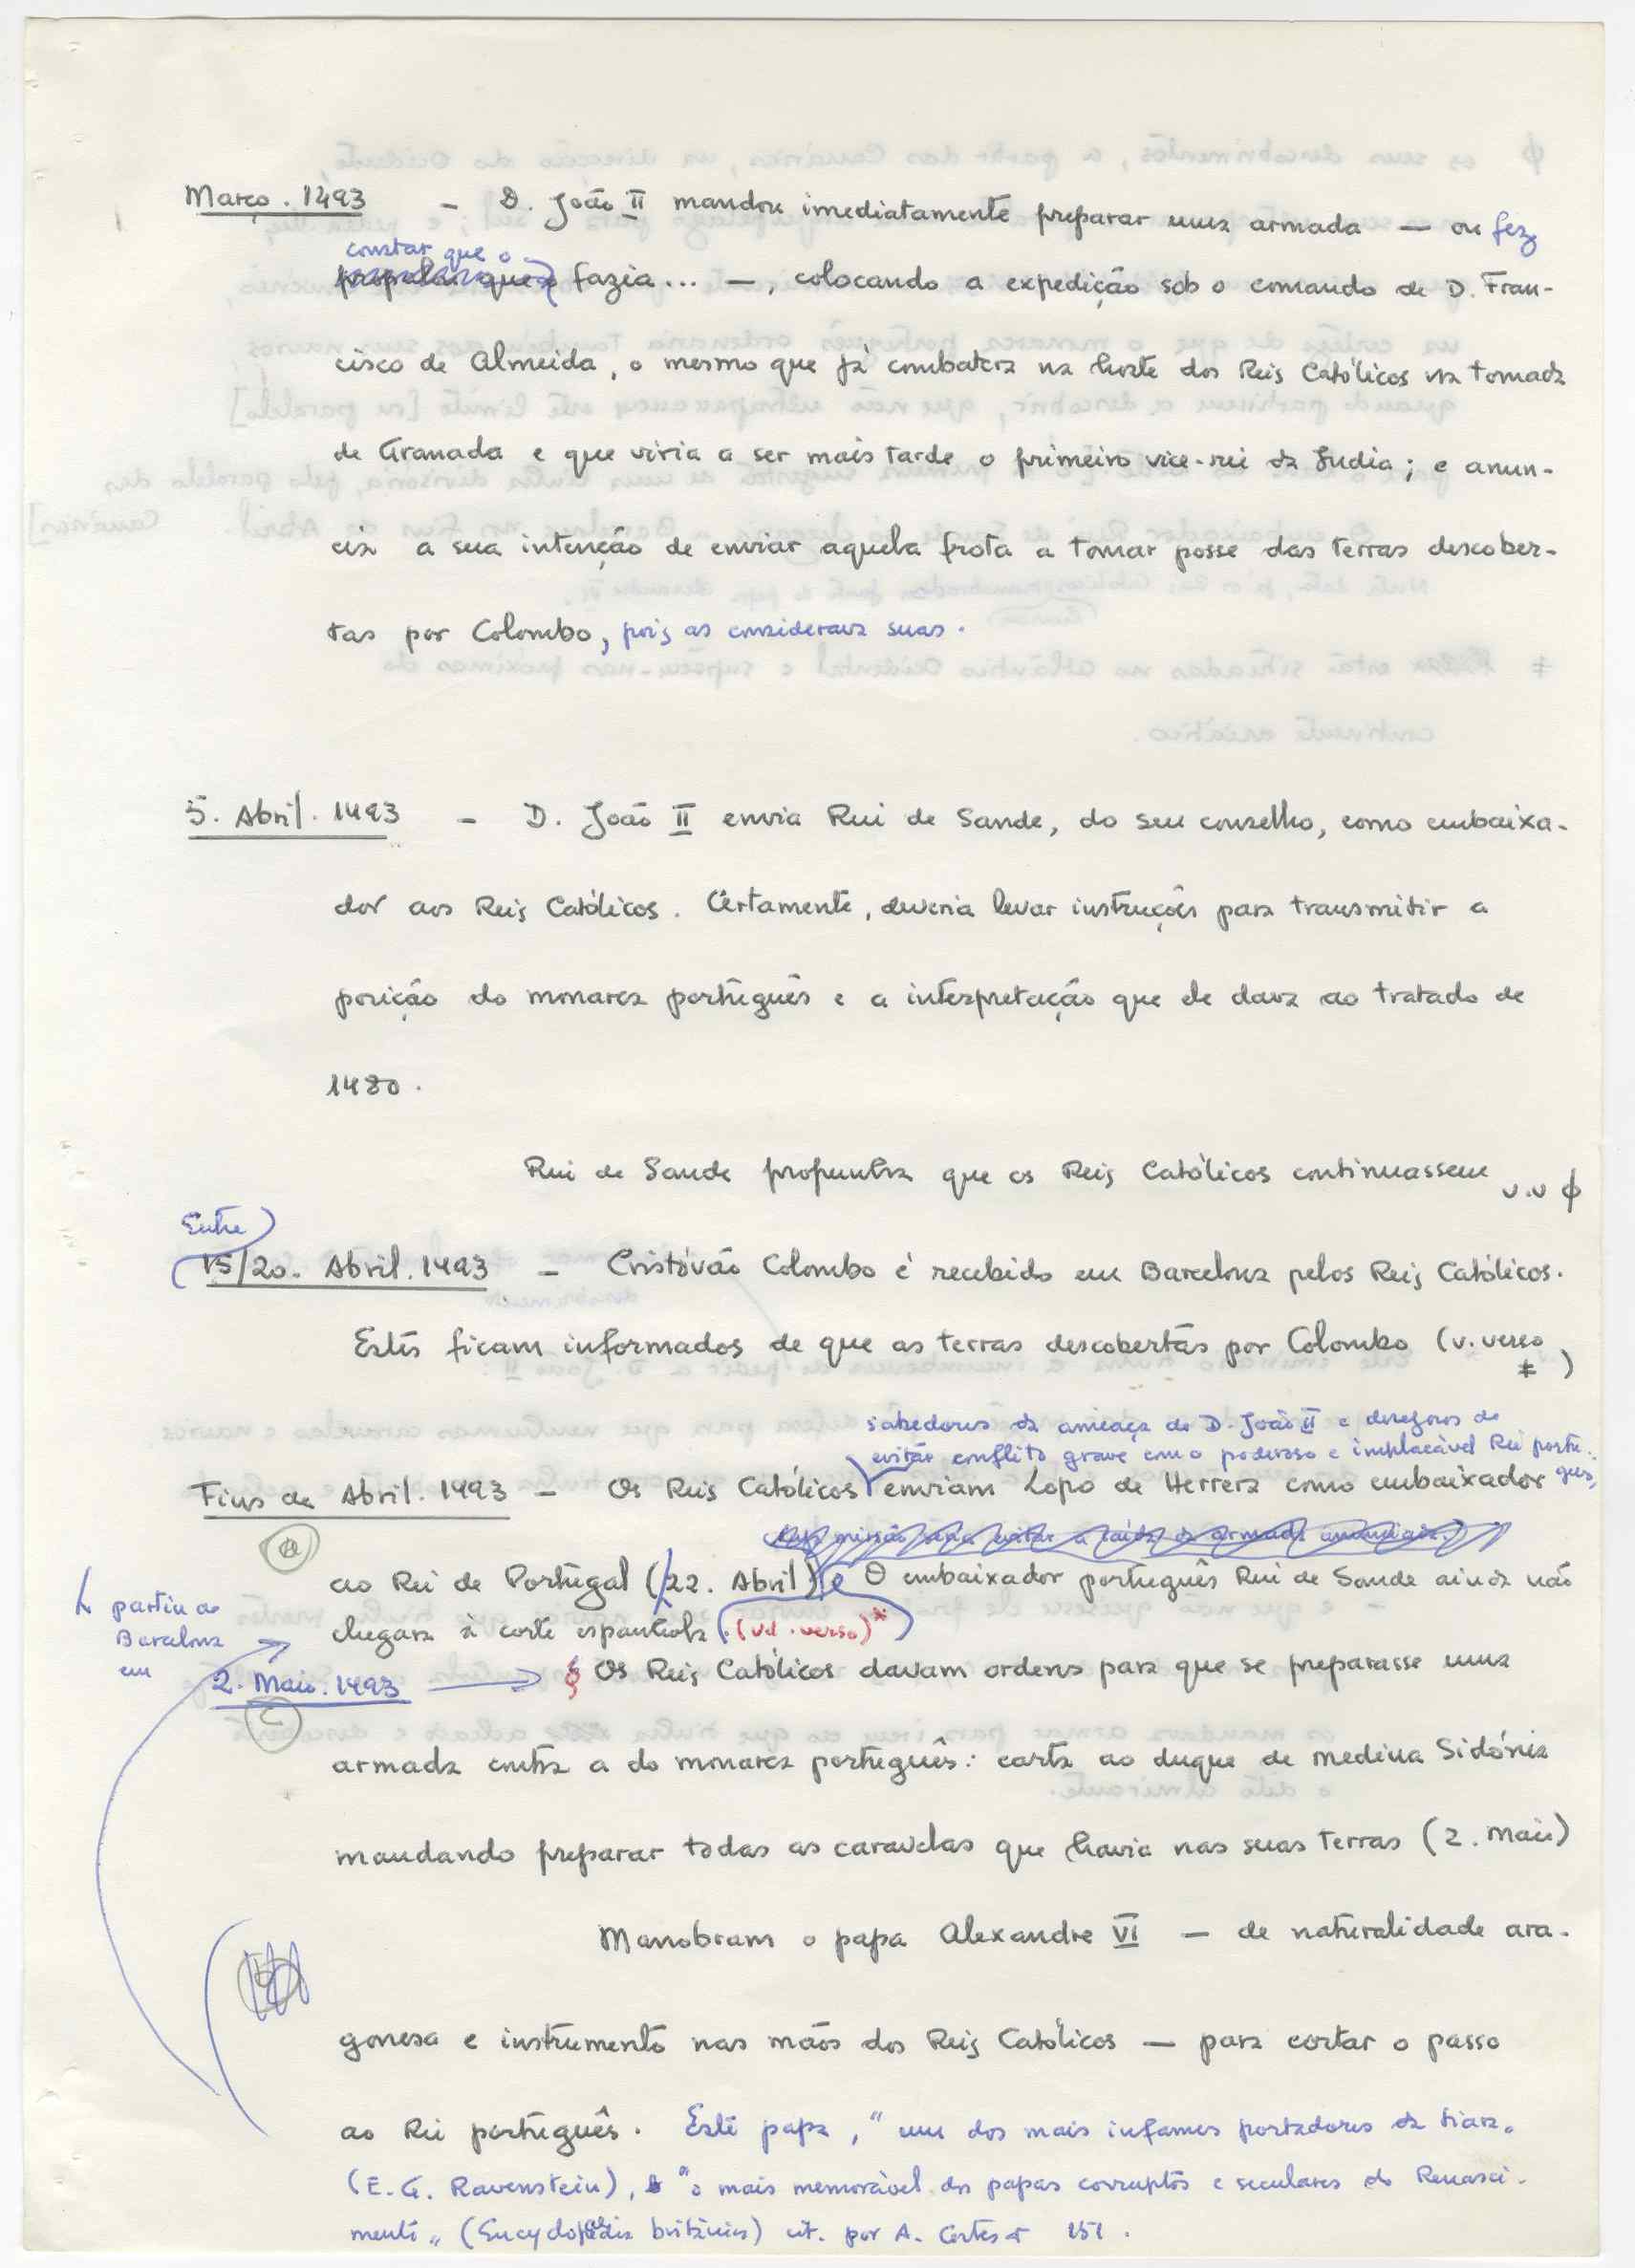 Março. 1493 - D. João II mandou imediatamente preparar uma armada — ou fez
constar que o
propalar que fazia... —, colocando a expedição sob o comando de D. Fran-
cisco de Almeida, o mesmo que já combatera na hoste dos Reis Católicos na tomada
de Granada e que viria a ser mais tarde o primeiro vice-rei da Índia; e anun-
cia a sua intenção de enviar aquela frota a tomar posse das terras descober-
tas por Colombo, pois as considerava suas.
5. Abril. 1493 - D. João II envia Rui de Sande, do seu conselho, como embaixa-
dor aos Reis Católicos. Certamente, deveria levar instruções para transmitir a
posição do monarca português e a interpretação que ele dava ao tratado de
1480.
Rui de Sande propunha que os Reis Católicos continuassem v.v ϕ
Entre
15/20. Abril. 1493 - Cristóvão Colombo é recebido em Barcelona pelos Reis Católicos.
Estes ficam informados de que as terras descobertas por Colombo (v. verso
ǂ )
sabedores da ameaça de D. João II e desejosos de
evitar conflito grave com o poderoso e implacável Rei portu-
guês,
Fins de Abril. 1493 - Os Reis Católicos enviam Lopo de Herrera como embaixador
missão para evitar a saída da armada anunciada.
(a)
ao Rei de Portugal (22. Abril) e O embaixador português Rui de Sande ainda não
chegara à corte espanhola. (vd. verso)*
partiu de
Barcelona
em
2. Maio. 1493 → § Os Reis Católicos davam ordens para que se preparasse uma
(c)
armada contra a do monarca português: carta ao duque de Medina Sidónia
mandando preparar todas as caravelas que havia nas suas terras (2. Maio)
Manobram o papa Alexandre VI — de naturalidade ara-
gonesa e instrumento nas mãos dos Reis Católicos — para cortar o passo
ao Rei português. Este papa, "um dos mais infames portadores da tiara"
(E. G. Ravenstein), "o mais memorável dos papas corruptos e seculares do Renasci-
mento" (Encyclopædia britânica) cit. por A. Cortesão 151.